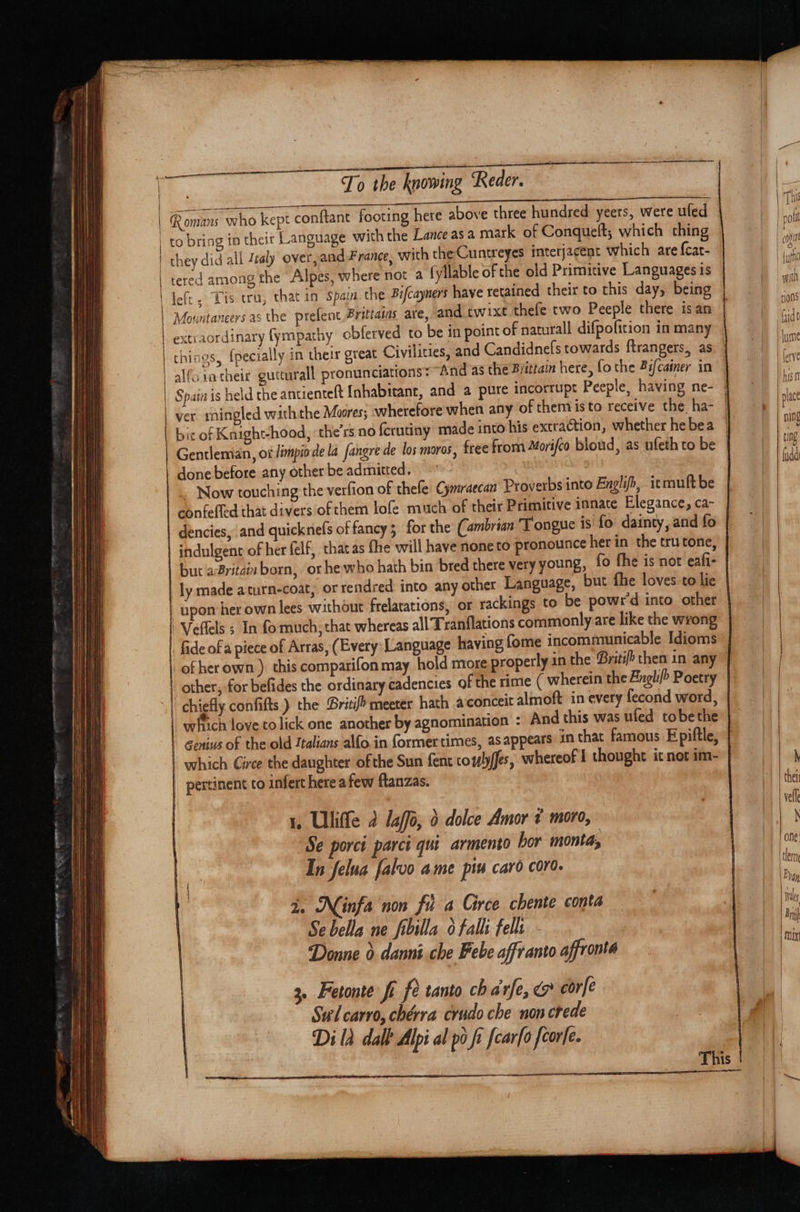 To the knowing Reder.
Romans who kept conſtant footing here above three hundred yeers, were uſed
to bring in their Language with the Lance as a mark of Conqueſt; which thing
they did all Italy over, and France, with the Cuntreyes interjacent which are ſcat-
tered among the Alpes, where not a ſyllable of the old Primitive Languages is
left; Tis tru, that in Spain the Biſcayners have retained their to this day, being
Mountaneers as the preſent Brittains are, and twixt theſe two Peeple there is an
extraordinary ſympathy obſerved to be in point of naturall diſpoſition in many
things, ſpecially in their great Civilities, and Candidneſs towards ſtrangers, as
alſo in their gutturall pronunciations: And as the Brittain here, ſo the Biſcainer in
Spain is held the antienteſt Inhabitant, and a pure incorrupt Peeple, having ne-
ver mingled with the Moores; wherefore when any of them is to receive the ha-
bit of Knight-hood, ther's no ſcrutiny made into his extraction, whether he be a
Gentleman, or limpio de la ſangre de los moros, free from Moriſco bloud, as uſeth to be
done before any other be admitted.
Now touching the verſion of theſe Cymraecan Proverbs into Engliſh, it muſt be
confeſſed that divers of them loſe much of their Primitive innate Elegance, ca-
dencies, and quickneſs of fancy; for the Cambrian Tongue is ſo dainty, and ſo
indulgent of her ſelf, that as ſhe will have none to pronounce her in the tru tone,
but a Britain born, or he who hath bin bred there very young, ſo ſhe is not eaſi-
ly made a turn-coat, or rendred into any other Language, but ſhe loves to lie
upon her own lees without frelatations, or rackings to be powr'd into other
Veſſels; In ſo much, that whereas all Tranſlations commonly are like the wrong
ſide of a piece of Arras, (Every Language having ſome incommunicable Idioms
of her own) this compariſon may hold more properly in the Britiſh then in any
other, for beſides the ordinary cadencies of the rime (wherein the Engliſh Poetry
chiefly conſiſts) the Britiſh meeter hath a conceit almoſt in every ſecond word,
which love to lick one another by agnomination: And this was uſed to be the
Genius of the old Italians alſo in former times, as appears in that famous Epiſtle,
which Circe the daughter of the Sun ſent to ulyſſes, whereof I thought it not im-
pertinent to inſert here a few ſtanzas.
1. Uliſſe ò laſſo, ò dolce Amor i moro,
Se porci parci qui armento hor monta,
In ſelua ſalvo a me piu caro coro.
2. Ninfa non fù a Circe chente conta
Se bella ne ſibilla ò falli felli
Donne ò danni che Febe affranto affronta
3. Fetonte ſi fè tanto ch arſe, & corſe
Sul carro, chérra crudo che non crede
Di là dall' Alpi al pò ſi ſcarſo ſcorſe.
This